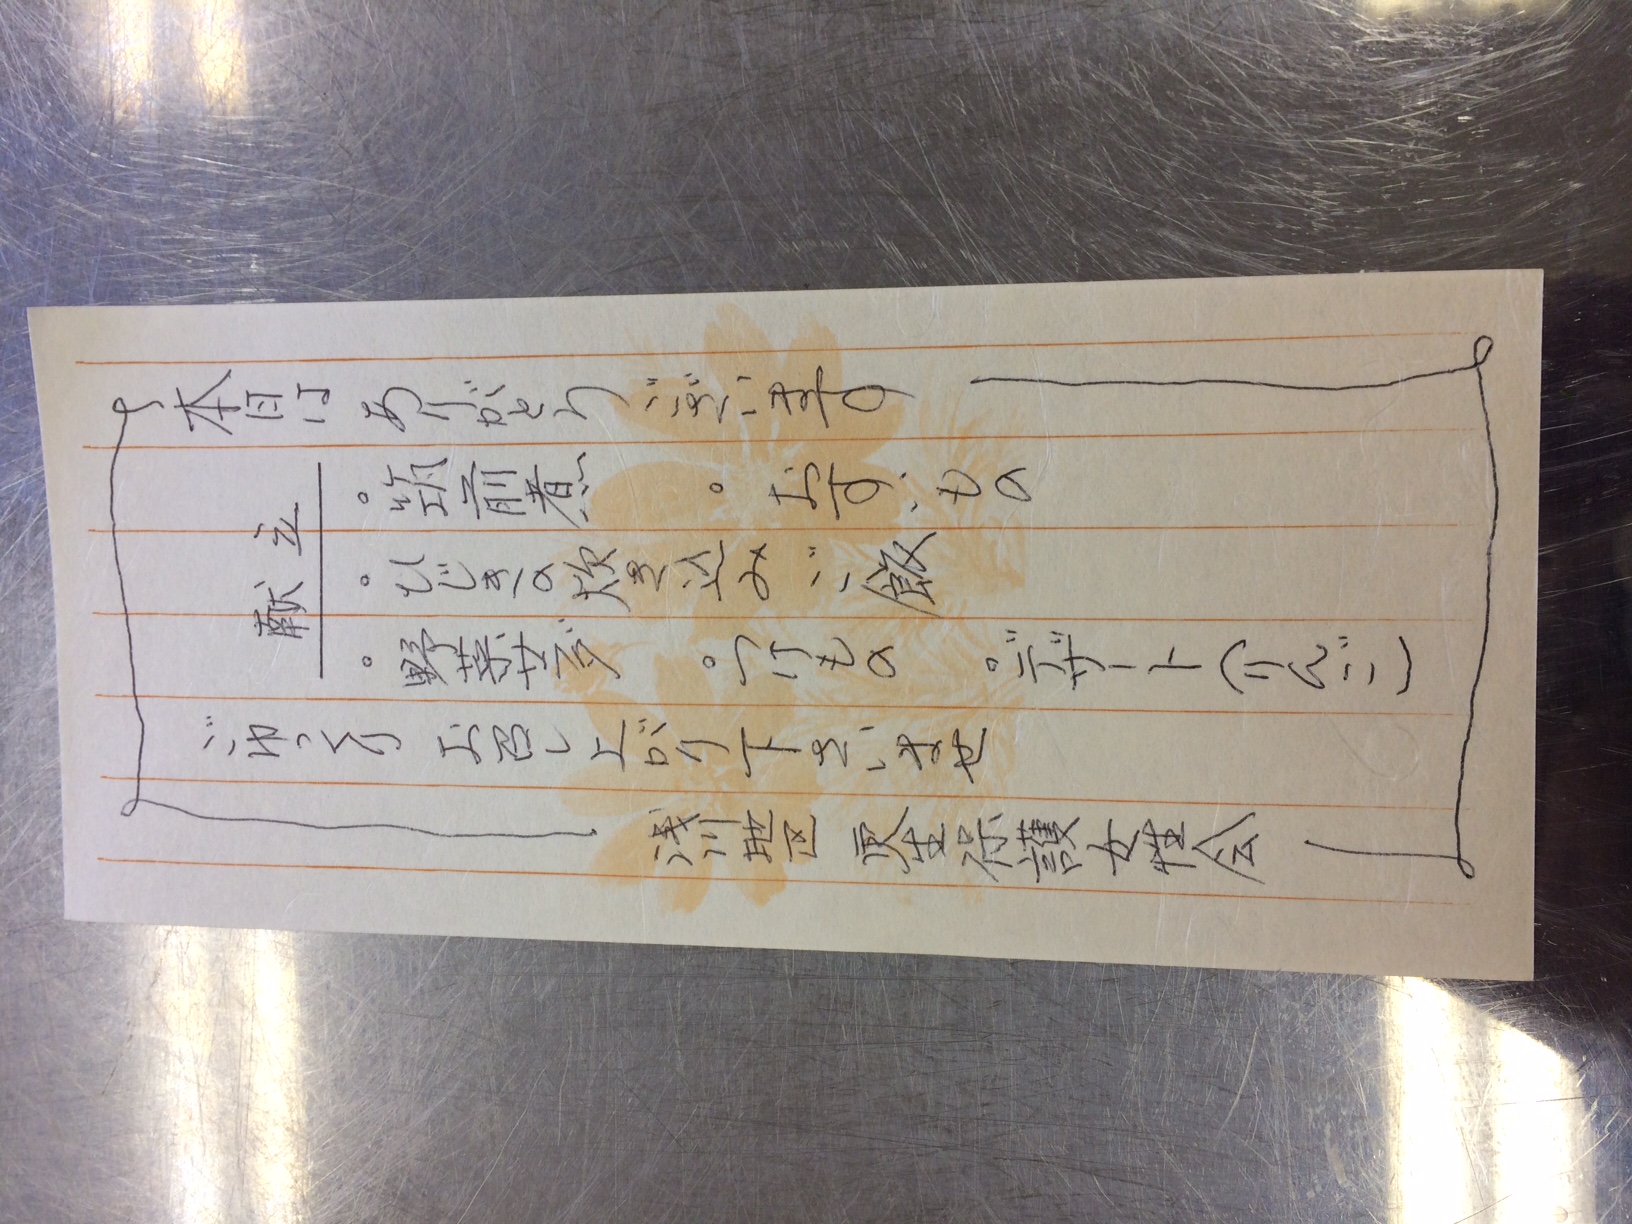 本日はありがとうございます
献立
。筑前煮 。おすいもの
。ひじきの炊き込みご飯
。野菜サラダ 。つけもの 。デザート(りんご)
ごゆっくりお召し上がり下さいませ
浅川地区 更生保護女性会